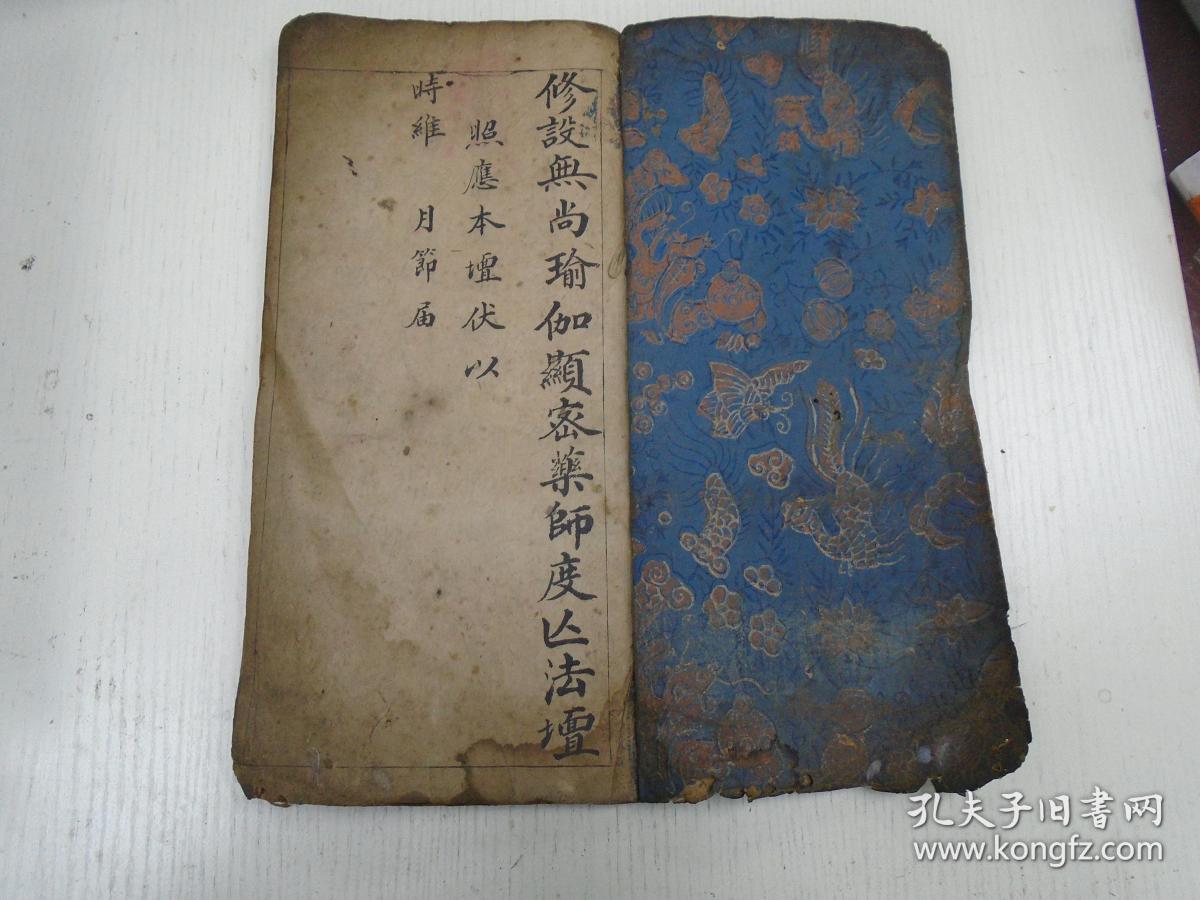 修設無尚瑜伽顯密藥師度亡法壇
照應本壇伏以
時維 月節届
孔夫子旧书网
www.kongfz.com